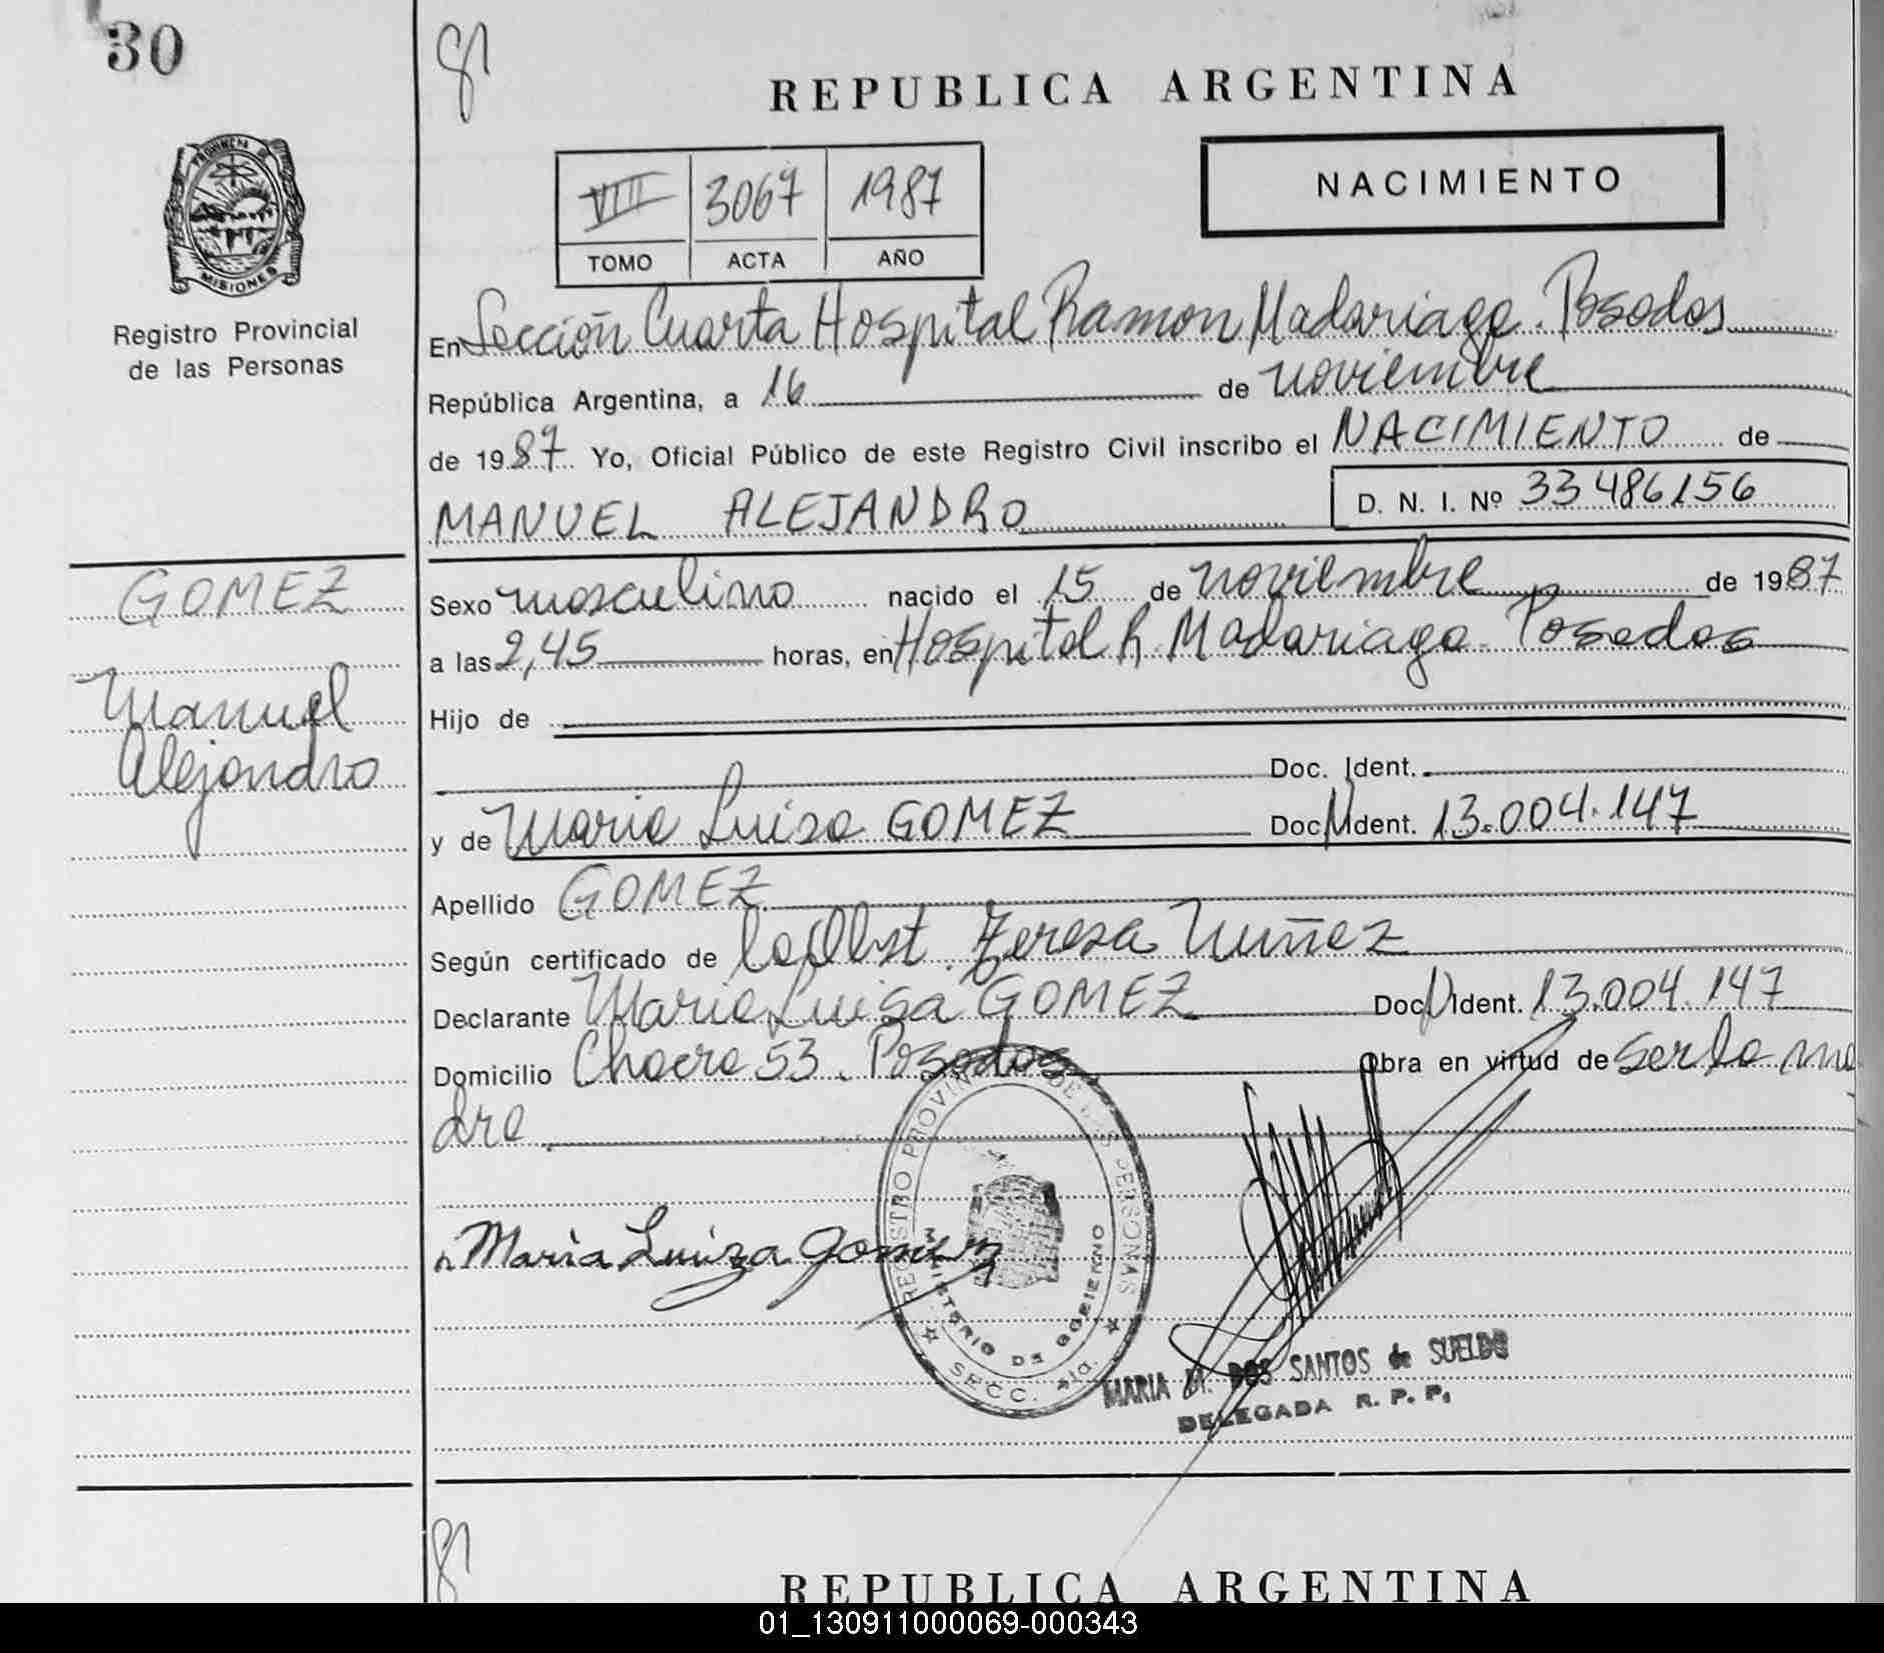 30
REPUBLICA ARGENTINA
NACIMIENTO
VIII 3067 1987
TOMO ACTA AÑO
PROVINCIA DE
MISIONES
Registro Provincial
de las Personas
En Sección Cuarta Hospital Ramon Madariaga. Posadas
República Argentina, a 16 de noviembre
de 1987. Yo, Oficial Público de este Registro Civil inscribo el NACIMIENTO de
MANUEL ALEJANDRO D. N. I. Nº 33486156
GOMEZ
Manuel
Alejandro
Sexo masculino nacido el 15 de noviembre de 1987
a las 2,45 horas, en Hospital R. Madariaga - Posadas
Hijo de
Doc. Ident.
y de Maria Luisa GOMEZ Doc. Ident. 13.004.147
Apellido GOMEZ
Según certificado de la Obst. Teresa Nuñez
Declarante Maria Luisa GOMEZ Doc. Ident. 13.004.147
Domicilio Chacra 53. Posadas Obra en virtud de ser la ma
dre.
Maria Luiza Gomez
REGISTRO PROVINCIAL DE LAS PERSONAS
MINISTERIO DE GOBIERNO
SECC. 4ta.
MARIA M. DOS SANTOS de SUELDO
DELEGADA R. P. P.
REPUBLICA ARGENTINA
01_130911000069-000343